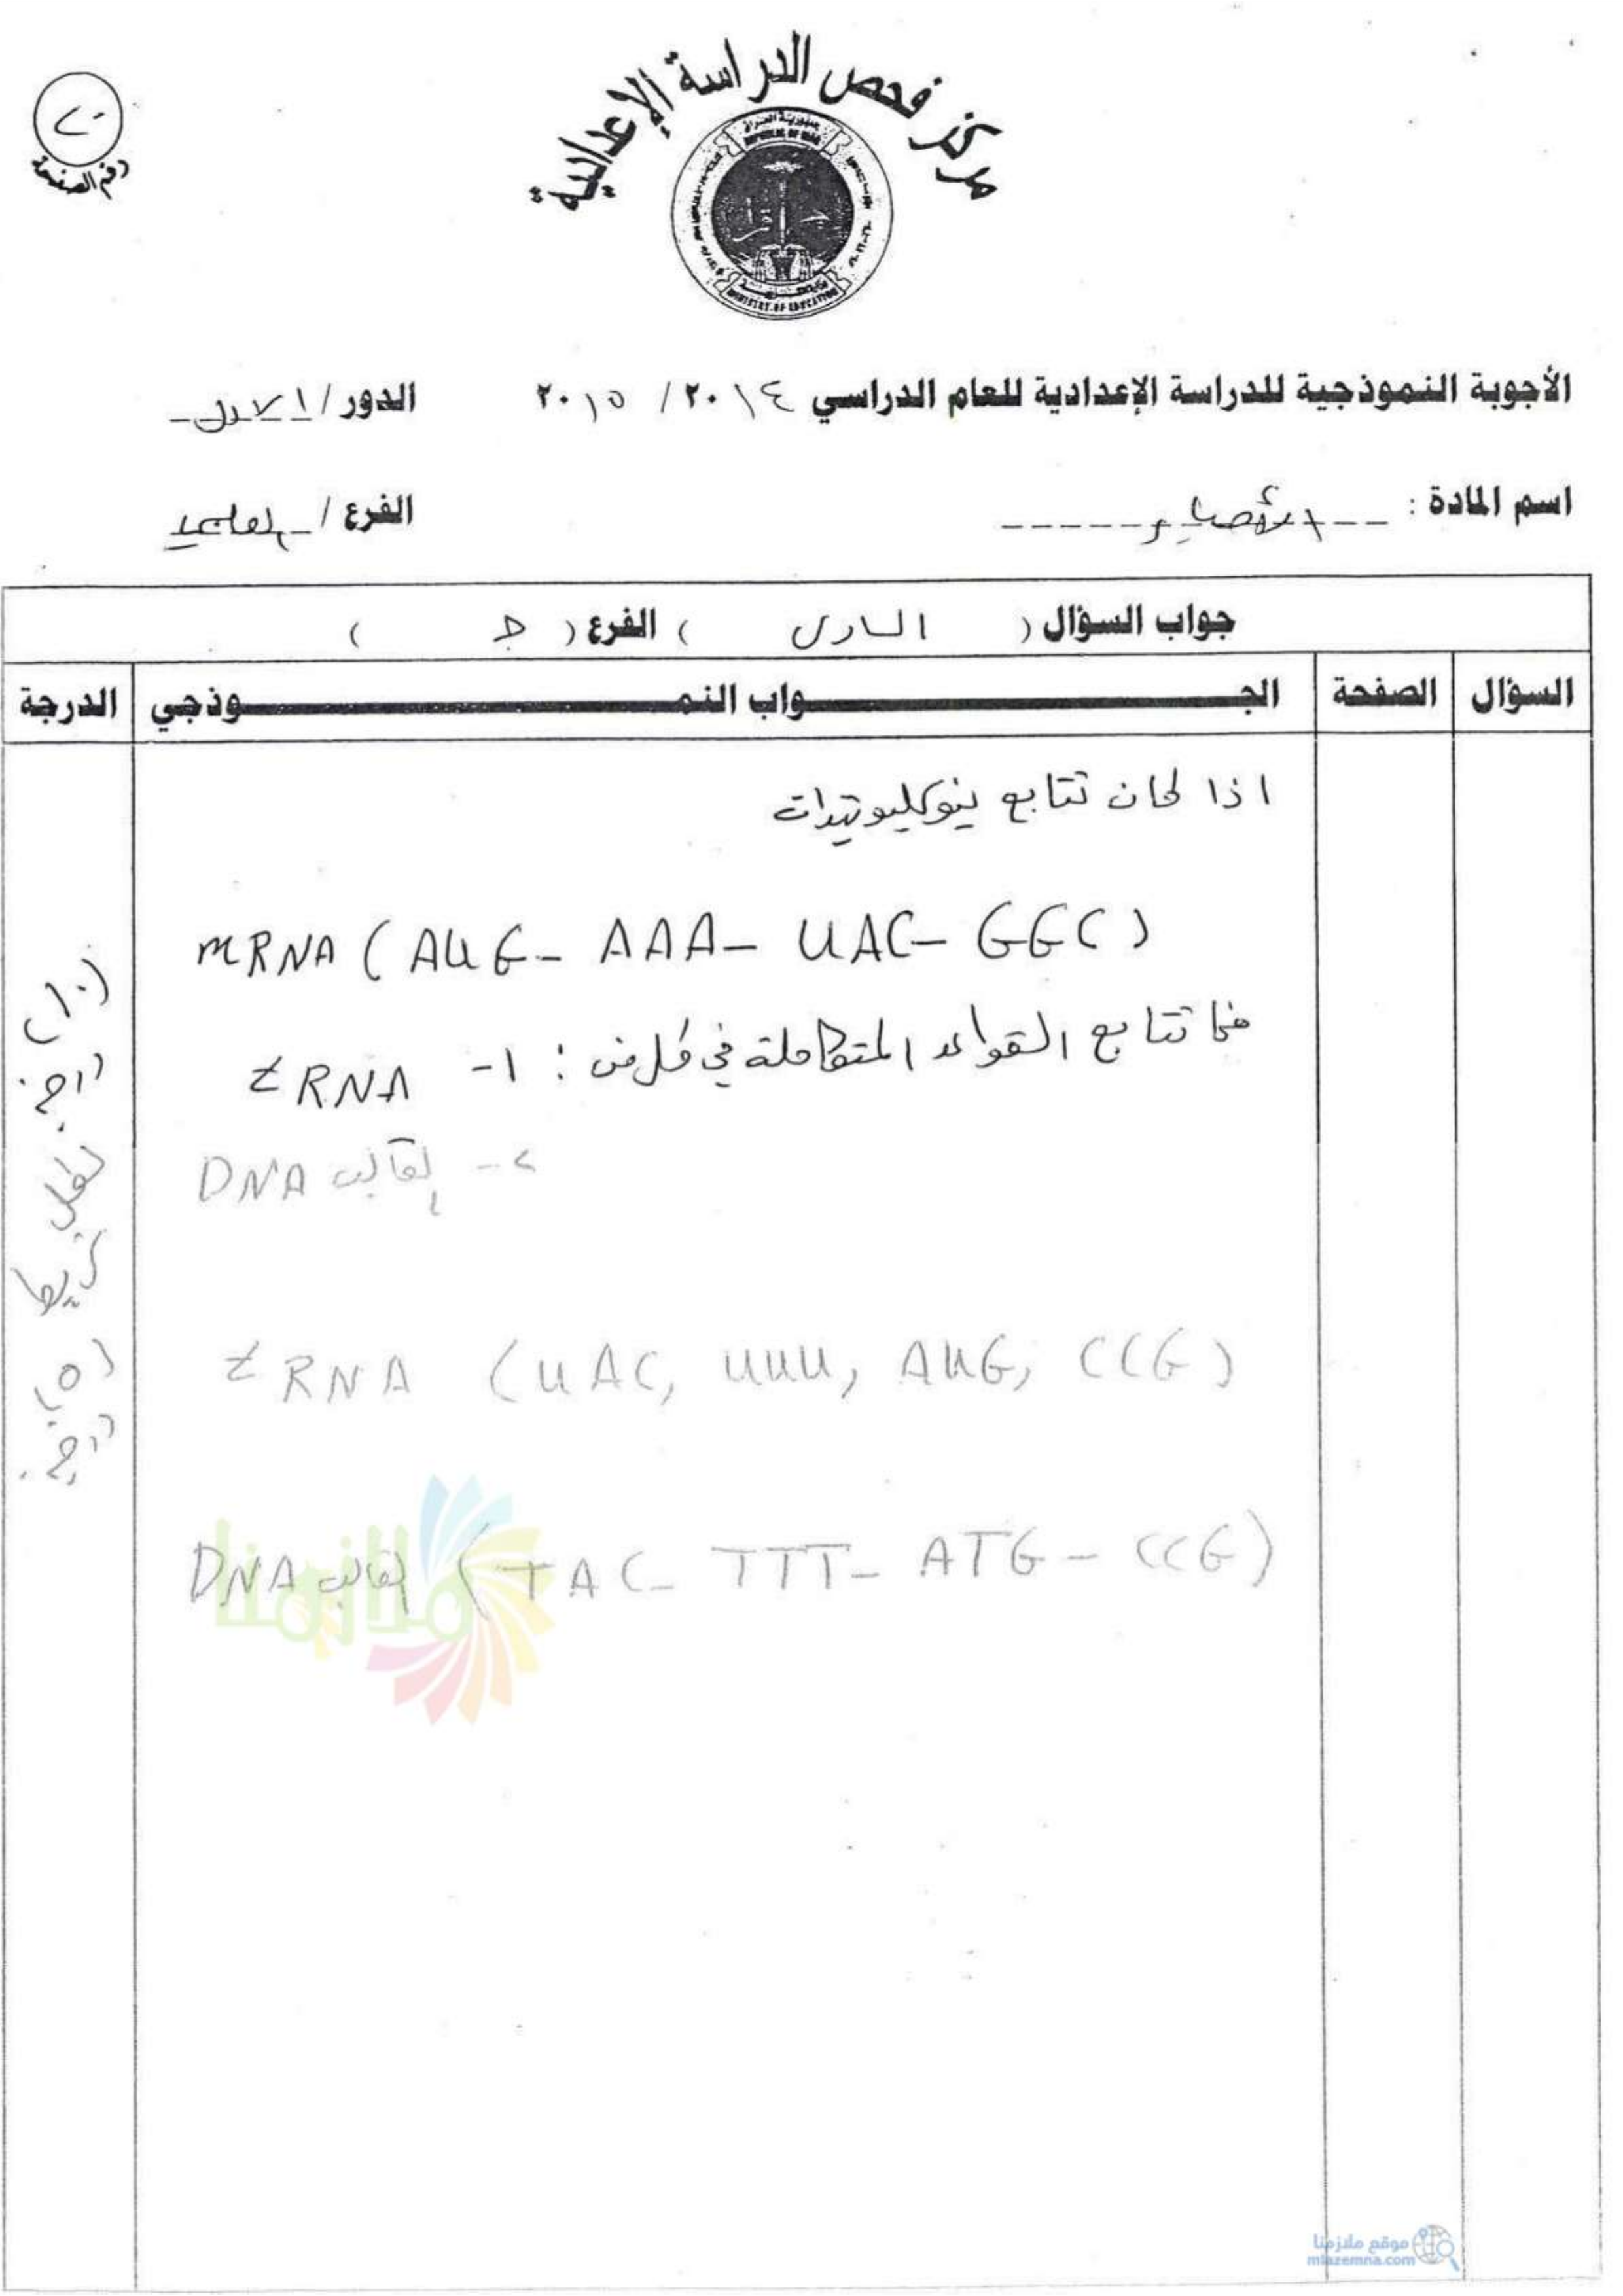 مركز فحص الدراسة الإعدادية
جمهورية العراق
REPUBLIC OF IRAQ
MINISTRY OF EDUCATION
٢٠
رقم الصفحة
الأجوبة النموذجية للدراسة الإعدادية للعام الدراسي ٢٠١٤ / ٢٠١٥ الدور / الاول
اسم المادة : الأحياء الفرع / العلمي
جواب السؤال ( السادس ) الفرع ( ب )
السؤال الصفحة الجـــواب النمـــوذجي الدرجة
اذا كان تتابع نيوكليوتيدات
mRNA (AUG - AAA - UAC - GGC)
فما تتابع القواعد المتكاملة في كل من : ١- tRNA
٢- القالب DNA
tRNA (UAC, UUU, AUG, CCG)
DNA القالب (TAC - TTT - ATG - CCG)
(١٠)
درجة
لكل
شريط
(٥)
درجة
ملازمنا
موقع ملازمنا
mlazemna.com